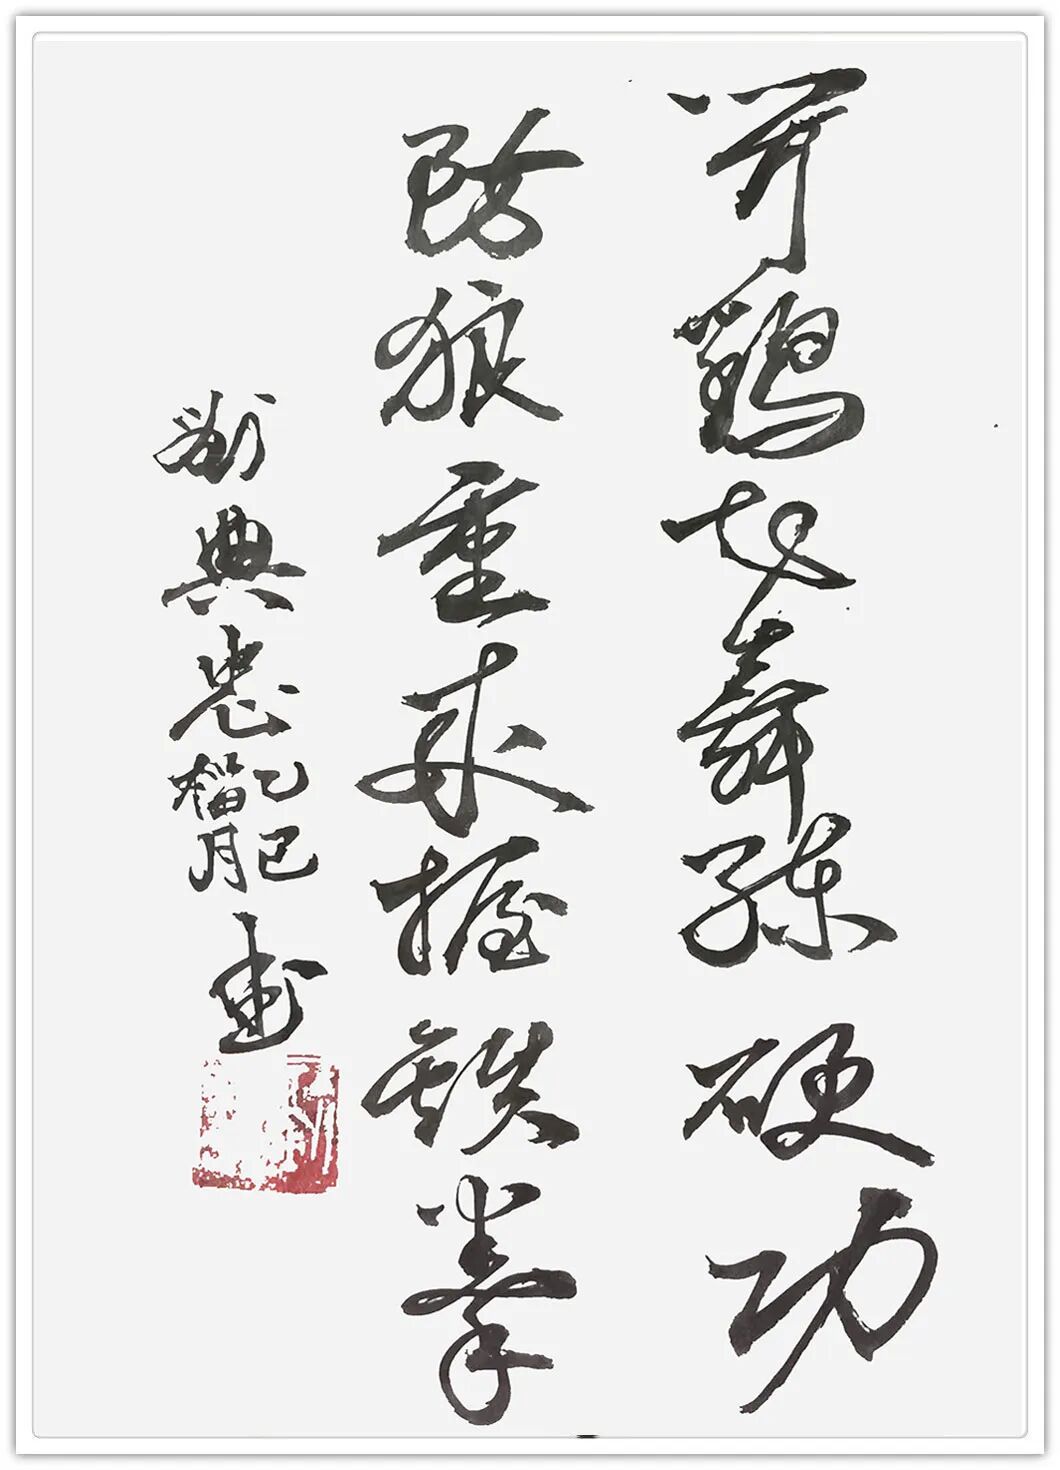 闻鸡起舞练硬功
防狼重来握铁拳
刘典忠
乙巳
腊月
书